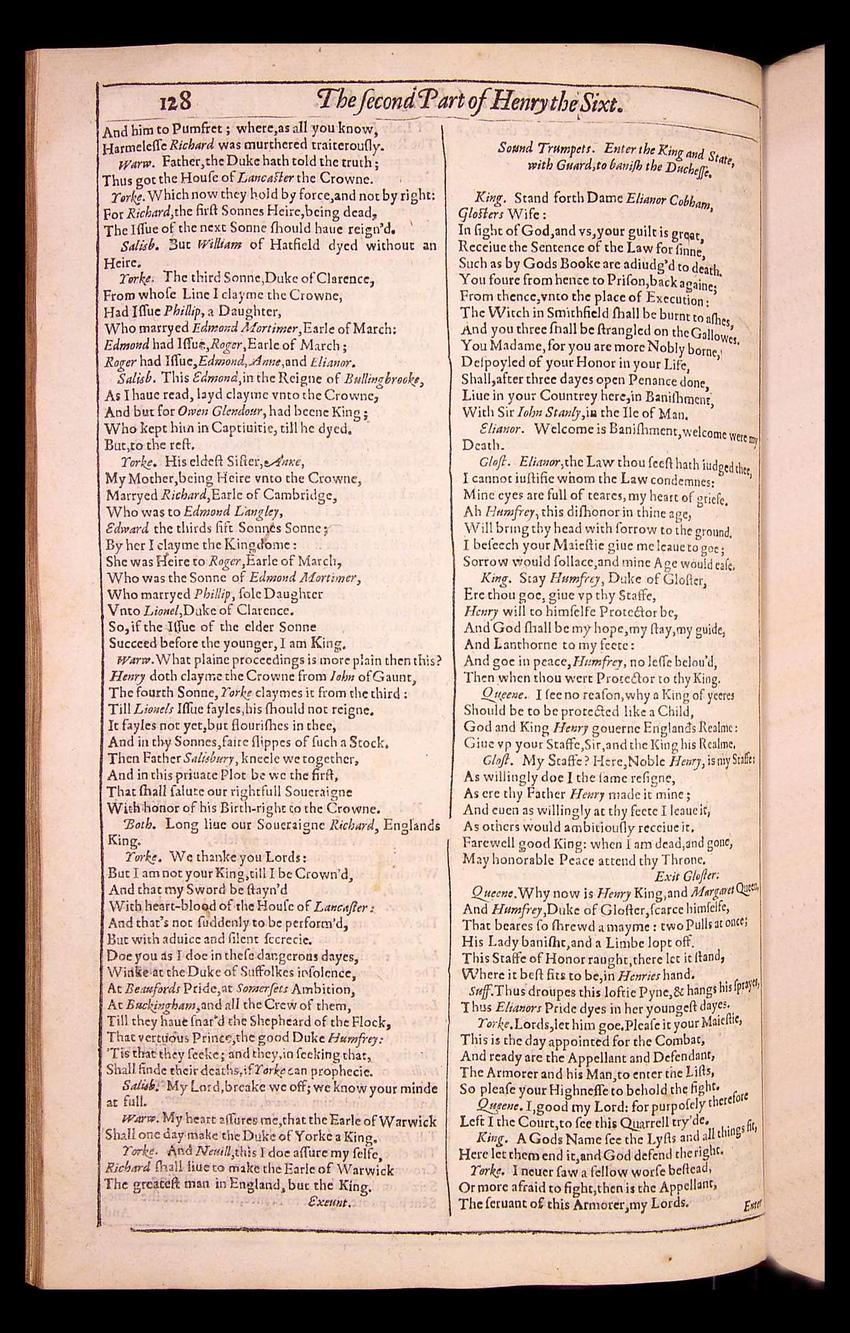 128
The ſecond Part of Henry the Sixt.
And him to Pumfret ; where,as all you know,
Harmeleſſe Richard was murthered traiterouſly.
Warw. Father,the Duke hath told the truth ;
Thus got the Houſe of Lancaſter the Crowne.
Yorke. Which now they hold by force,and not by right:
For Richard,the firſt Sonnes Heire,being dead,
The Iſſue of the next Sonne ſhould haue reign'd.
Salisb. But William of Hatfield dyed without an
Heire.
Yorke. The third Sonne,Duke of Clarence,
From whoſe Line I clayme the Crowne,
Had Iſſue Phillip, a Daughter,
Who marryed Edmond Mortimer,Earle of March:
Edmond had Iſſue,Roger,Earle of March ;
Roger had Iſſue,Edmond,Anne,and Elianor.
Salisb. This Edmond,in the Reigne of Bullingbrooke,
As I haue read, layd clayme vnto the Crowne,
And but for Owen Glendour, had beene King ;
Who kept him in Captiuitie, till he dyed.
But,to the reſt.
Yorke. His eldeſt Siſter,Anne,
My Mother,being Heire vnto the Crowne,
Marryed Richard,Earle of Cambridge,
Who was to Edmond Langley,
Edward the thirds fift Sonnes Sonne ;
By her I clayme the Kingdome :
She was Heire to Roger,Earle of March,
Who was the Sonne of Edmond Mortimer,
Who marryed Phillip, ſole Daughter
Vnto Lionel,Duke of Clarence.
So,if the Iſſue of the elder Sonne
Succeed before the younger, I am King.
Warw.What plaine proceedings is more plain then this?
Henry doth clayme the Crowne from Iohn of Gaunt,
The fourth Sonne, Yorke claymes it from the third :
Till Lionels Iſſue fayles,his ſhould not reigne.
It fayles not yet,but flouriſhes in thee,
And in thy Sonnes,faire ſlippes of ſuch a Stock.
Then Father Salisbury, kneele we together,
And in this priuate Plot be we the firſt,
That ſhall ſalute our rightfull Soueraigne
With honor of his Birth-right to the Crowne.
Both. Long liue our Soueraigne Richard, Englands
King.
Yorke. We thanke you Lords :
But I am not your King,till I be Crown'd,
And that my Sword be ſtayn'd
With heart-blood of the Houſe of Lancaſter :
And that's not ſuddenly to be perform'd,
But with aduice and ſilent ſecrecie.
Doe you as I doe in theſe dangerous dayes,
Winke at the Duke of Suffolkes inſolence,
At Beaufords Pride,at Somerſets Ambition,
At Buckingham,and all the Crew of them,
Till they haue ſnar'd the Shepheard of the Flock,
That vertuous Prince,the good Duke Humfrey:
'Tis that they ſeeke; and they,in ſeeking that,
Shall finde their deaths,if Yorke can prophecie.
Salisb. My Lord,breake we off; we know your minde
at full.
Warw. My heart aſſures me,that the Earle of Warwick
Shall one day make the Duke of Yorke a King.
Yorke. And Neuill,this I doe aſſure my ſelfe,
Richard ſhall liue to make the Earle of Warwick
The greateſt man in England, but the King.
Exeunt.
Sound Trumpets. Enter the King and State,
with Guard,to baniſh the Ducheſſe.
King. Stand forth Dame Elianor Cobham,
Gloſters Wife :
In ſight of God,and vs,your guilt is great,
Receiue the Sentence of the Law for ſinne,
Such as by Gods Booke are adiudg'd to death.
You foure from hence to Priſon,back againe;
From thence,vnto the place of Execution :
The Witch in Smithfield ſhall be burnt to aſhes,
And you three ſhall be ſtrangled on the Gallowes.
You Madame,for you are more Nobly borne,
Deſpoyled of your Honor in your Life,
Shall,after three dayes open Penance done,
Liue in your Countrey here,in Baniſhment,
With Sir Iohn Stanly,in the Ile of Man.
Elianor. Welcome is Baniſhment,welcome were my
Death.
Gloſt. Elianor,the Law thou ſeeſt hath iudged thee,
I cannot iuſtifie whom the Law condemnes:
Mine eyes are full of teares, my heart of griefe.
Ah Humfrey, this diſhonor in thine age,
Will bring thy head with ſorrow to the ground.
I beſeech your Maieſtie giue me leaue to goe ;
Sorrow would ſollace,and mine Age would eaſe.
King. Stay Humfrey, Duke of Gloſter,
Ere thou goe, giue vp thy Staffe,
Henry will to himſelfe Protector be,
And God ſhall be my hope,my ſtay,my guide,
And Lanthorne to my feete :
And goe in peace, Humfrey, no leſſe belou'd,
Then when thou wert Protector to thy King.
Queene. I ſee no reaſon,why a King of yeeres
Should be to be protected like a Child,
God and King Henry gouerne Englands Realme :
Giue vp your Staffe,Sir,and the King his Realme.
Gloſt. My Staffe? Here,Noble Henry, is my Staffe:
As willingly doe I the ſame reſigne,
As ere thy Father Henry made it mine ;
And euen as willingly at thy feete I leaue it,
As others would ambitiouſly receiue it.
Farewell good King: when I am dead,and gone,
May honorable Peace attend thy Throne.
Exit Gloſter.
Queene.Why now is Henry King,and Margaret Queen,
And Humfrey,Duke of Gloſter,ſcarce himſelfe,
That beares ſo ſhrewd a mayme : two Pulls at once;
His Lady baniſht,and a Limbe lopt off.
This Staffe of Honor raught,there let it ſtand,
Where it beſt fits to be,in Henries hand.
Suff.Thus droupes this loftie Pyne,& hangs his ſprayes,
Thus Elianors Pride dyes in her youngeſt dayes.
Yorke.Lords,let him goe.Pleaſe it your Maieſtie,
This is the day appointed for the Combat,
And ready are the Appellant and Defendant,
The Armorer and his Man,to enter the Liſts,
So pleaſe your Highneſſe to behold the fight.
Queene. I,good my Lord: for purpoſely therefore
Left I the Court,to ſee this Quarrell try'de.
King. A Gods Name ſee the Lyſts and all things fit,
Here let them end it,and God defend the right.
Yorke. I neuer ſaw a fellow worſe beſtead,
Or more afraid to fight,then is the Appellant,
The ſeruant of this Armorer,my Lords.
Enter